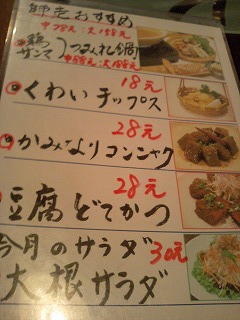 師走おすすめ
中78元 大158元
鶏
サンマ
つみれ鍋
中88元 大188元
18元
くわいチップス
28元
かみなりコンニャク
28元
豆腐どてかつ
今月のサラダ 30元
大根サラダ